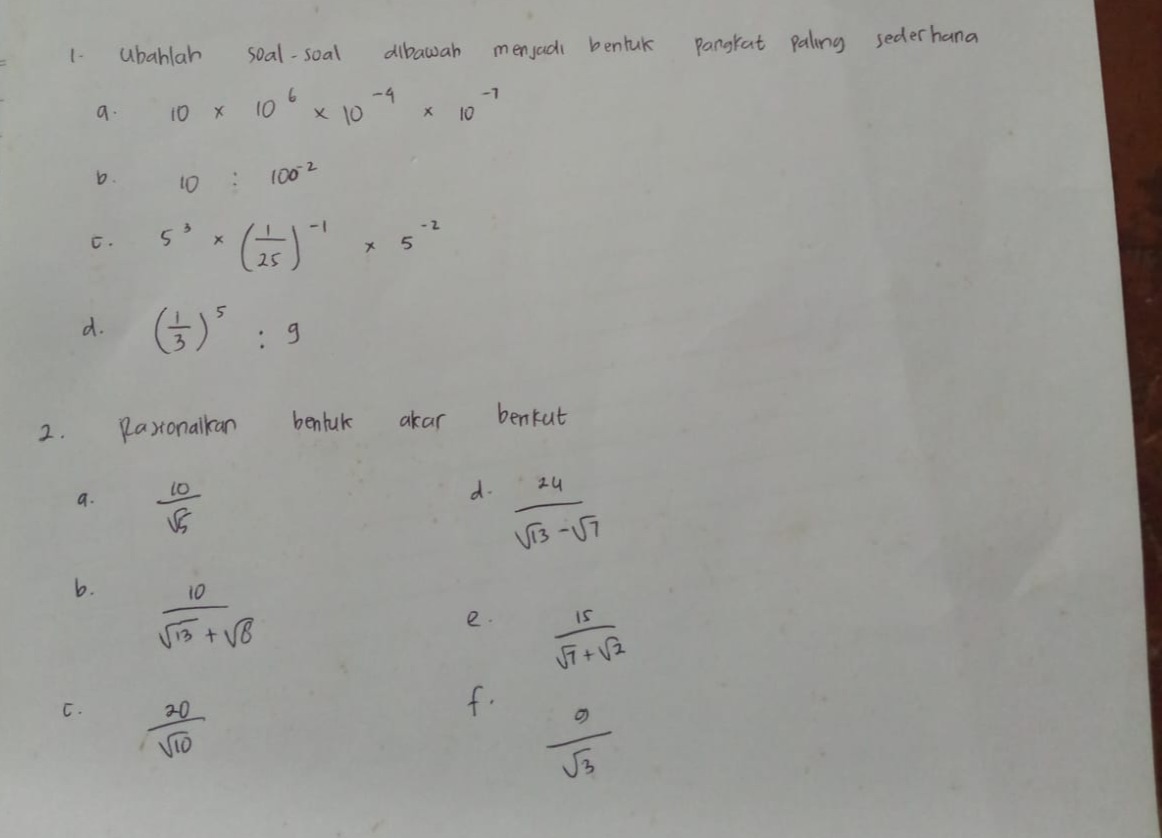 1. Ubahlah soal-soal dibawah menjadi bentuk pangkat paling sederhana
a. 10 × 10⁶ × 10⁻⁴ × 10⁻⁷
b. 10 : 100⁻²
c. 5³ × (1/25)⁻¹ × 5⁻²
d. (1/3)⁵ : 9
2. Rasionalkan bentuk akar berikut
a. 10/√5
d. 24/(√13 - √7)
b. 10/(√13 + √8)
e. 15/(√7 + √2)
c. 20/√10
f. 9/√3